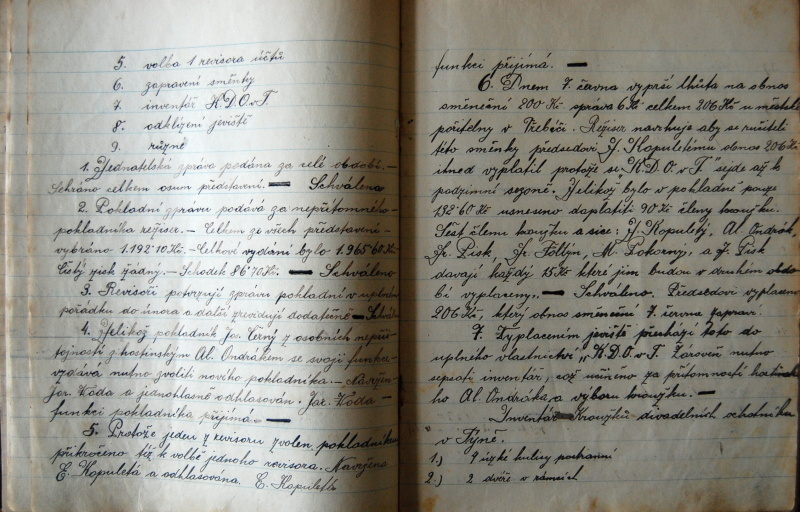 5. volba 1 revisora účtů
6. zapravení směnky
7. inventář K.D.O.v T.
8. odklizení jeviště
9. různé
1. Jednatelská zpráva podána za celé období. —
Sehráno celkem osum představení. — Schváleno
2. Pokladní zprávu podává za nepřítomného
pokladníka režiser. — Celkem ze všech představení
vybráno 1.192·10 Kč. — Celkové vydání bylo 1.965·60 Kč.
Čistý zisk žádný. — Schodek 86·70 Kč. — Schváleno
3. Revisoři potvrzují zprávu pokladní v úplném
pořádku do února a další zrevidují dodatečně —
4. Jelikož pokladník Jar. Černý z osobních nepří-
tojností z hostinským Al. Ondrákem se svojí funkce
vzdává nutno zvoliti nového pokladníka. —
Jar. Koda a jednohlasně odhlasován. Jar. Koda
funkci pokladníka přijímá. —
5. Protože jeden z revisorů zvolen pokladníkem
přikročeno též k volbě jednoho revisora. Navržena
E. Kopuletá a odhlasována. E. Kopuletá
funkci přijímá. —
6. Dnem 7. června vyprší lhůta na obnos
směnečný 200 Kč správa 6 Kč celkem 206 Kč u městské
spořitelny v Třebíči. Režiser navrhuje aby se ručiteli
této směnky předsedovi J. Kopuletému obnos 206 Kč
ihned vyplatil protože se "K.D.O. v T" sejde až k
podzimní sezoně. Jelikož bylo v pokladně pouze
192·60 Kč usneseno doplatiti 90 Kč členy kroužku.
Šest členů kroužku a sice: J. Kopuletý, Al. Ondrák,
Fr. Pisk Fr. Foltýn, M. Pokorný, a J. Pisk
davají každý 15 Kč které jim budou v druhém obdo
bí vyplaceny. — Schváleno. Předsedovi vyplaceno
206 Kč, který obnos směnečný 7. června zapraví.
7. Vyplacením jeviště přechází toto do
uplného vlastnictví "K.D.O. v T. Zároveň nutno
sepsati inventář, což učiněno za přítomnosti hostinské
ho Al. Ondráka a výboru kroužku. —
Inventář Kroužku divadelních ochotníků
v Týně.
1.) 4 úzké kulisy postranní
2.) 2 dvéře v rámcích